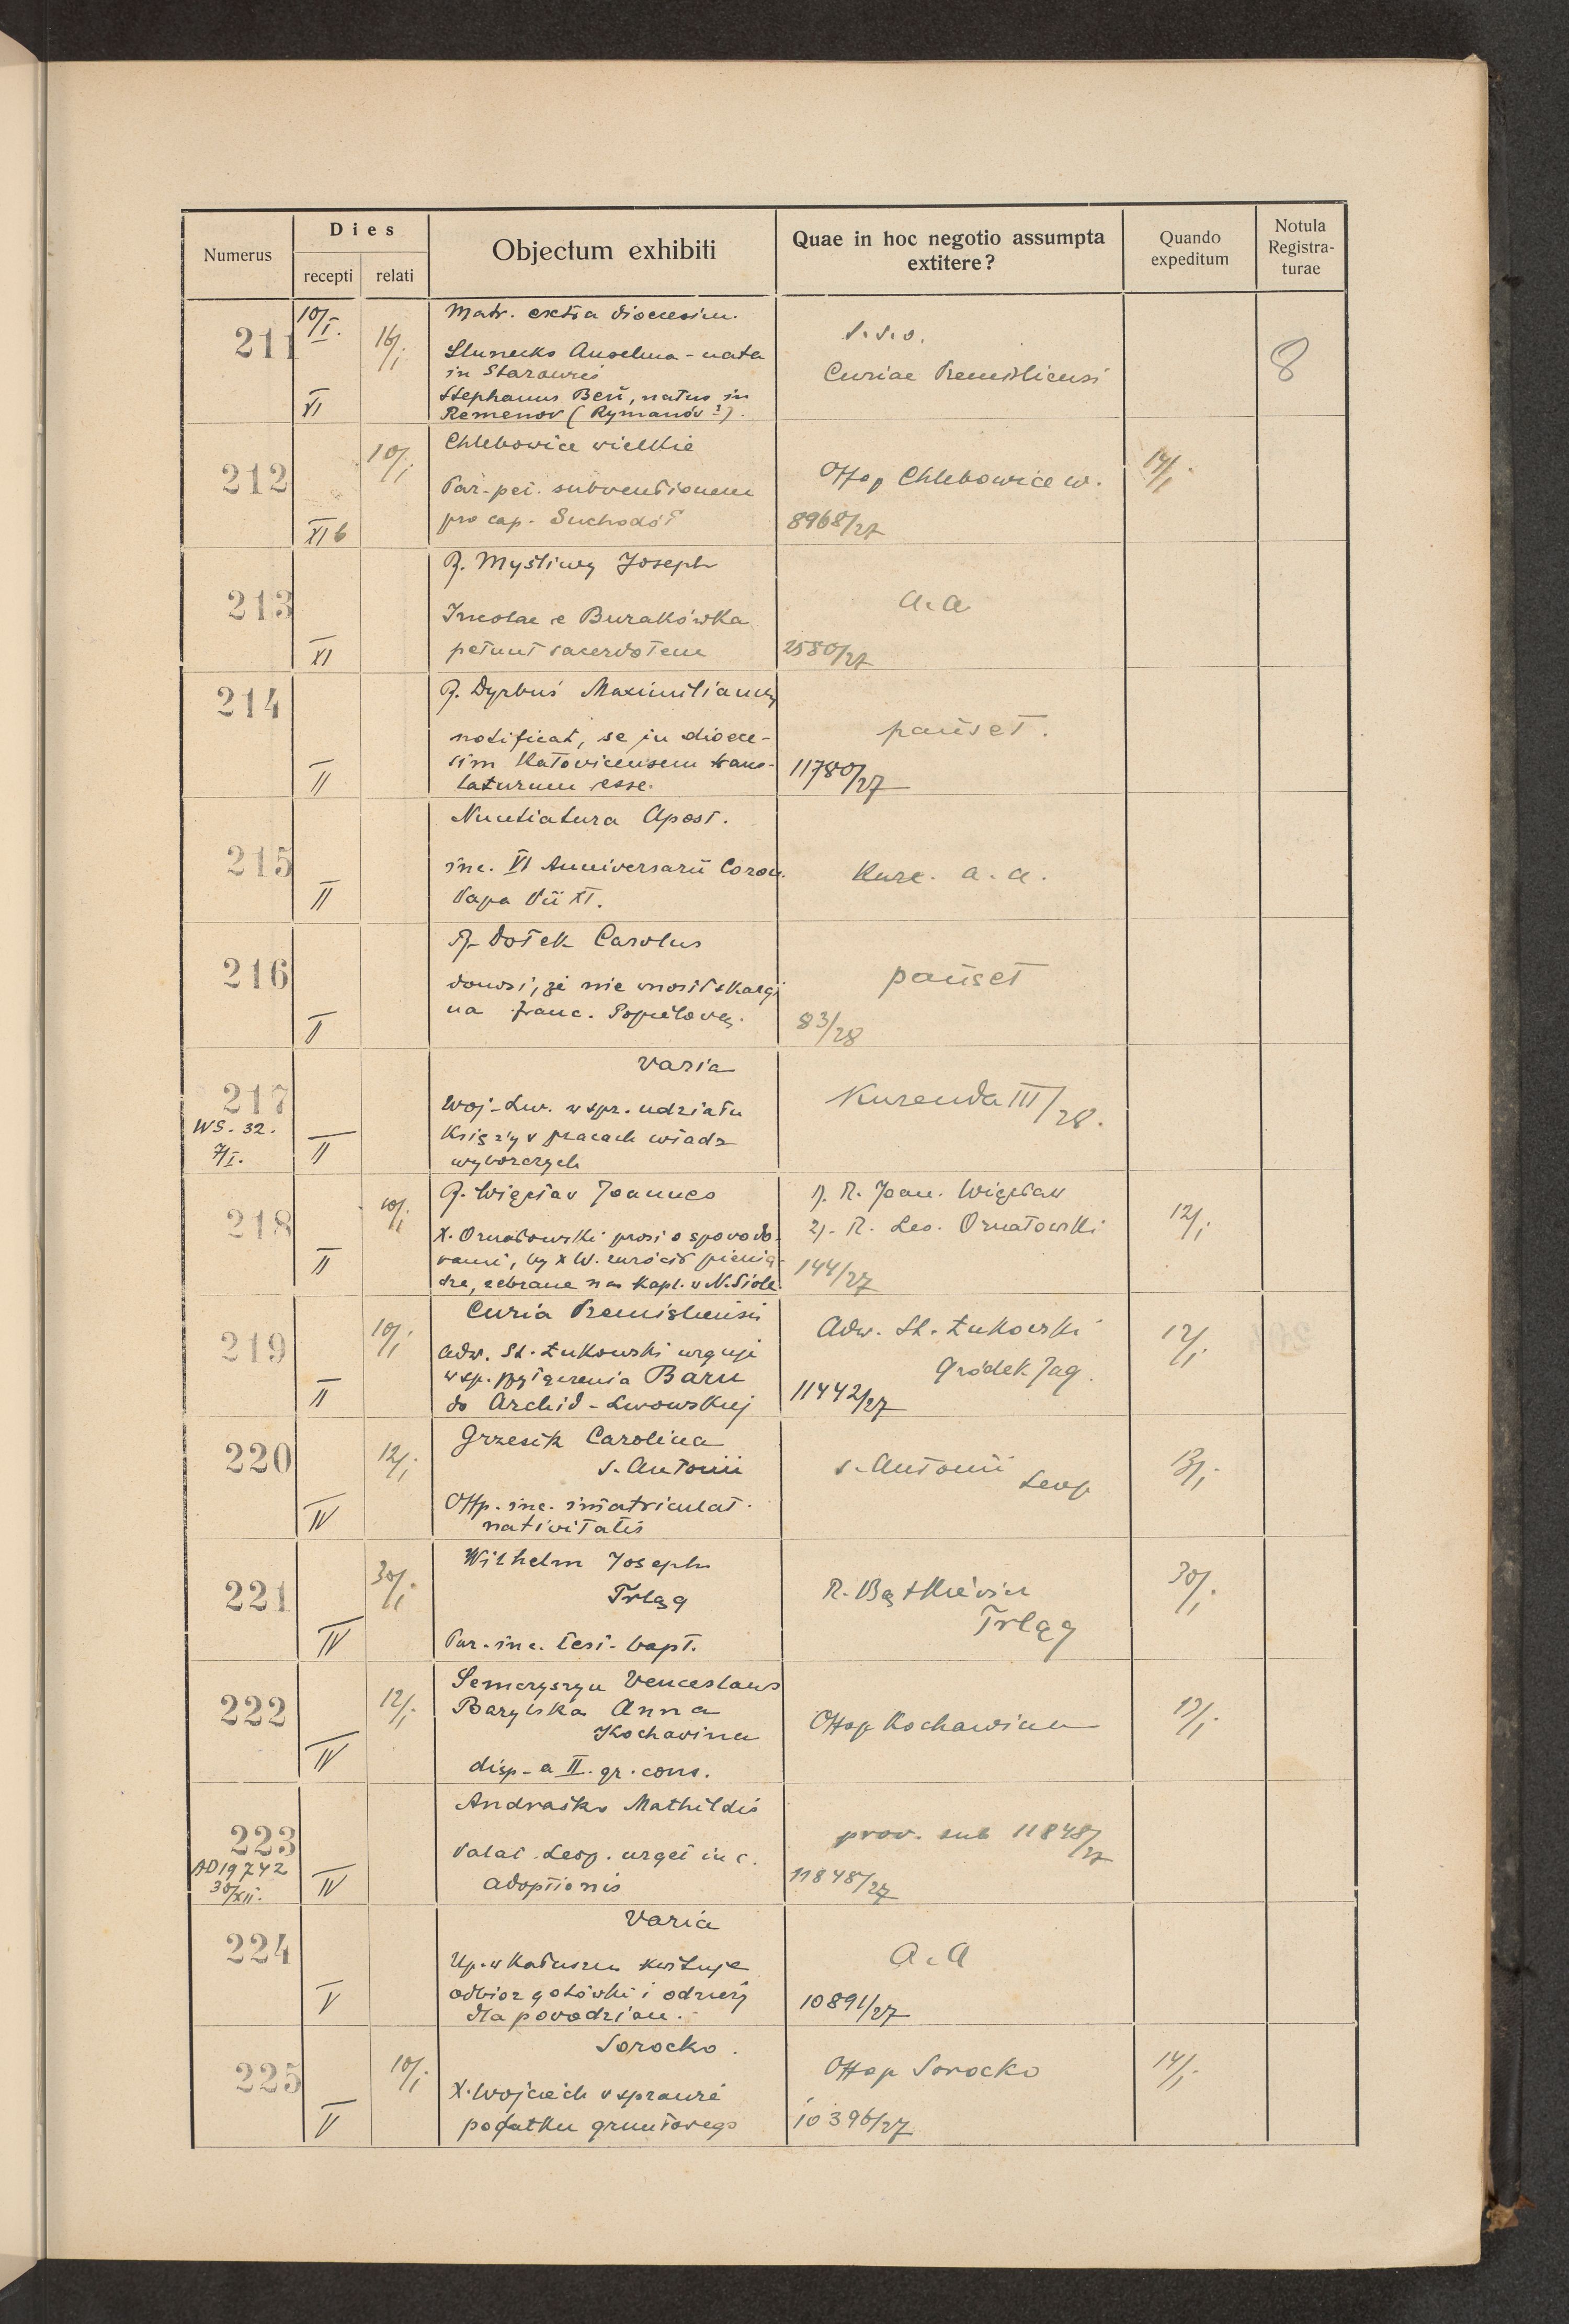 Numerus
Dies
recepti
relati
Objectum exhibiti
Quae in hoc negotio assumpta
extitere?
Quando
expeditum
Notula
Registra-
turae
211
10/I.
VI
16/I
Matr. extra dioecesim.
Anselma - nata
in
Stephanus Beň, natus in
Remenov (Rymanów?).
s.s.o.
Curiae Premisliensi
8
212
XI b
10/I
Chlebowice wielkie
Par. pet. subventionem
pro cap. Suchodół
Offop Chlebowice w.
8968/27
14/I
213
XI
R. Myśliwy Joseph
Incolae e Burakówka
petunt sacerdotem
a.a
2580/27
214
II
R. Dyrbuś Maximilianus
notificat, se in dioece-
sim Katovicensem trans-
laturum esse.
pauset.
11780/27
215
II
Nuntiatura Apost.
inc. VI Anniversarii Coron.
Papa Pii XI.
Kurr. a.a.
216
II
R. Dołek Carolus
donosi, że nie wnosił skargi
na Franc.
pauset
83/28
217
WS. 32.
7/I.
II
Varia
Woj. Lw. w spr. udziału
Księży w pracach władz
wyborczych
Kurenda III/28.
218
II
10/I
R. Więcław Joannes
X. Ornatowski prosi o spowodo-
wanie, by X W. zwrócił pienią-
dze, zebrane na kapl. w N. Siole
1). R. Joan. Więcław
2). R. Leo. Ornatowski
144/27
12/I
219
II
10/I
Curia Premisliensis
Adw. St. Żukowski urguje
w sp. Baru
do Archid. Lwowskiej
Adw. St. Żukowski
Gródek Jag.
11442/27
12/I
220
IV
12/I
Grzesik Carolina
s. Antonii
Offp. inc. imatriculat.
nativitatis
s. Antonii
Leop
13/I
221
IV
30/I
Wilhelm Joseph
Trląg
Par. inc. test. bapt.
R.
Trląg
30/I
222
IV
12/I
Semczyszyn Venceslaus
Barylska Anna
Kochavina
disp. a II. gr. cons.
Offop Kochawina
13/I
223
AD 19742
30/XII.
IV
Andraśko Mathildis
Palat. Leop. urget inc.
adoptionis
prov. sub 11848/27
11848/27
224
V
Varia
Up. w Kałuszu kwituje
odbiór gotówki i odzieży
dla powodzian.
a.a
10891/27
225
V
10/I
Sorocko.
X. Wojciech w sprawie
podatku gruntowego
Offop Sorocko
10396/27
14/I